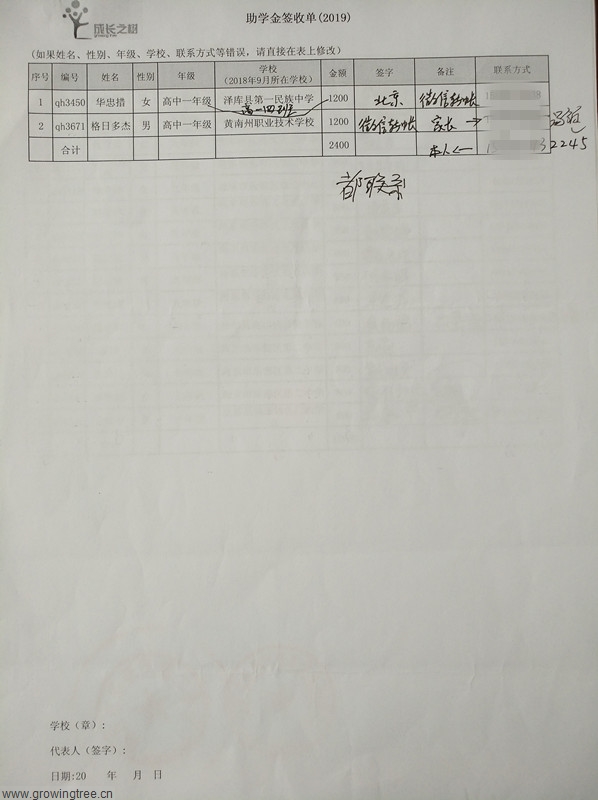 成长之树
助学金签收单(2019)
(如果姓名、性别、年级、学校、联系方式等错误，请直接在表上修改)
序号 编号 姓名 性别 年级 学校 (2018年9月所在学校) 金额 签字 备注 联系方式
1 qh3450 华忠措 女 高中一年级 泽库县第一民族中学 1200 北京 微信转帐
高一四班
2 qh3671 格日多杰 男 高中一年级 黄南州职业技术学校 1200 微信转帐 家长→
合计 2400 本人← 2245
学校（章）:
代表人（签字）:
日期:20 年 月 日
www.growingtree.cn